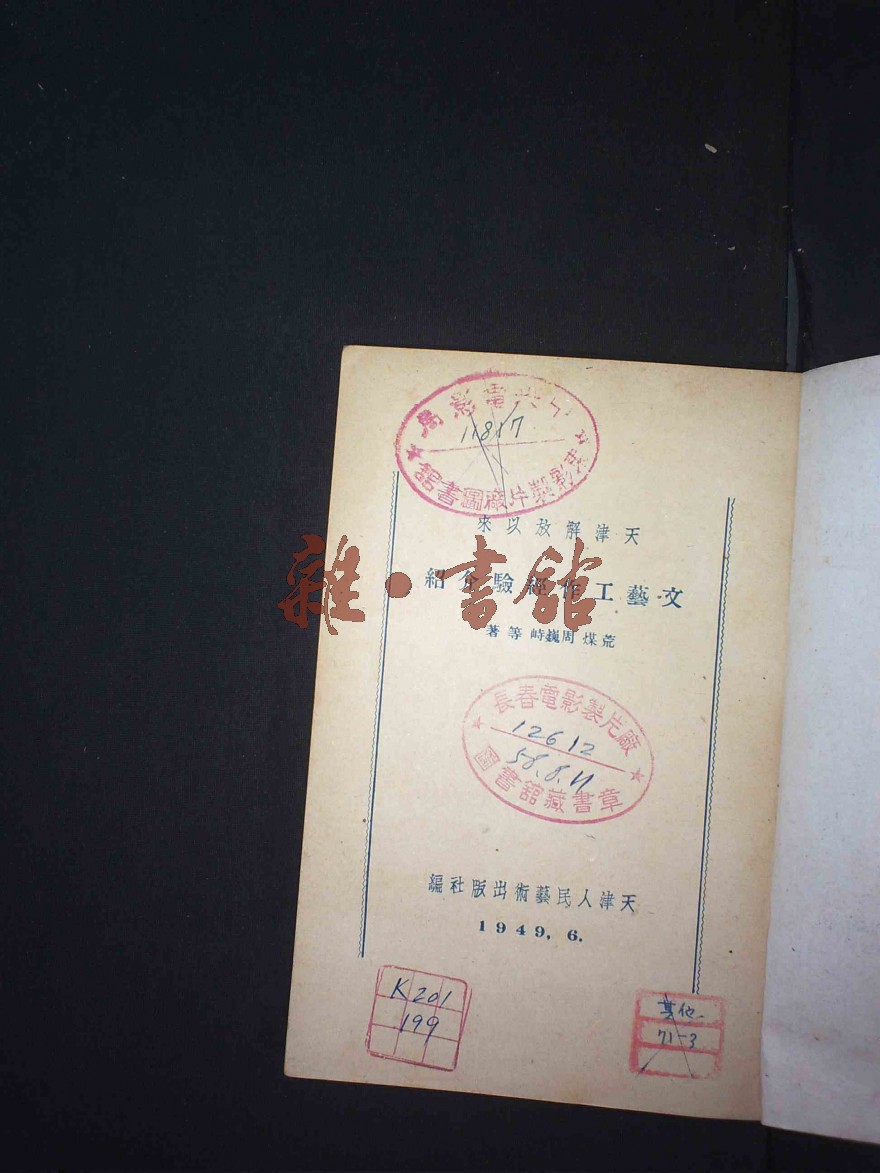 中央電影局
11817
影製片廠圖書館
天津解放以來
文藝工作經驗介紹
雜·書館
荒煤 周巍峙 等著
長春電影製片廠
12612
58.8.11
圖書館藏書章
天津人民藝術出版社編
1949.6.
K201
199
其他
71-3